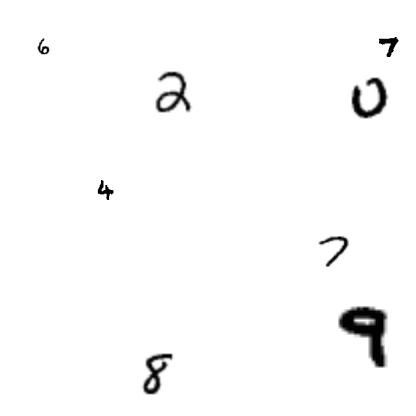 6 7
2 0
4
7
9
8